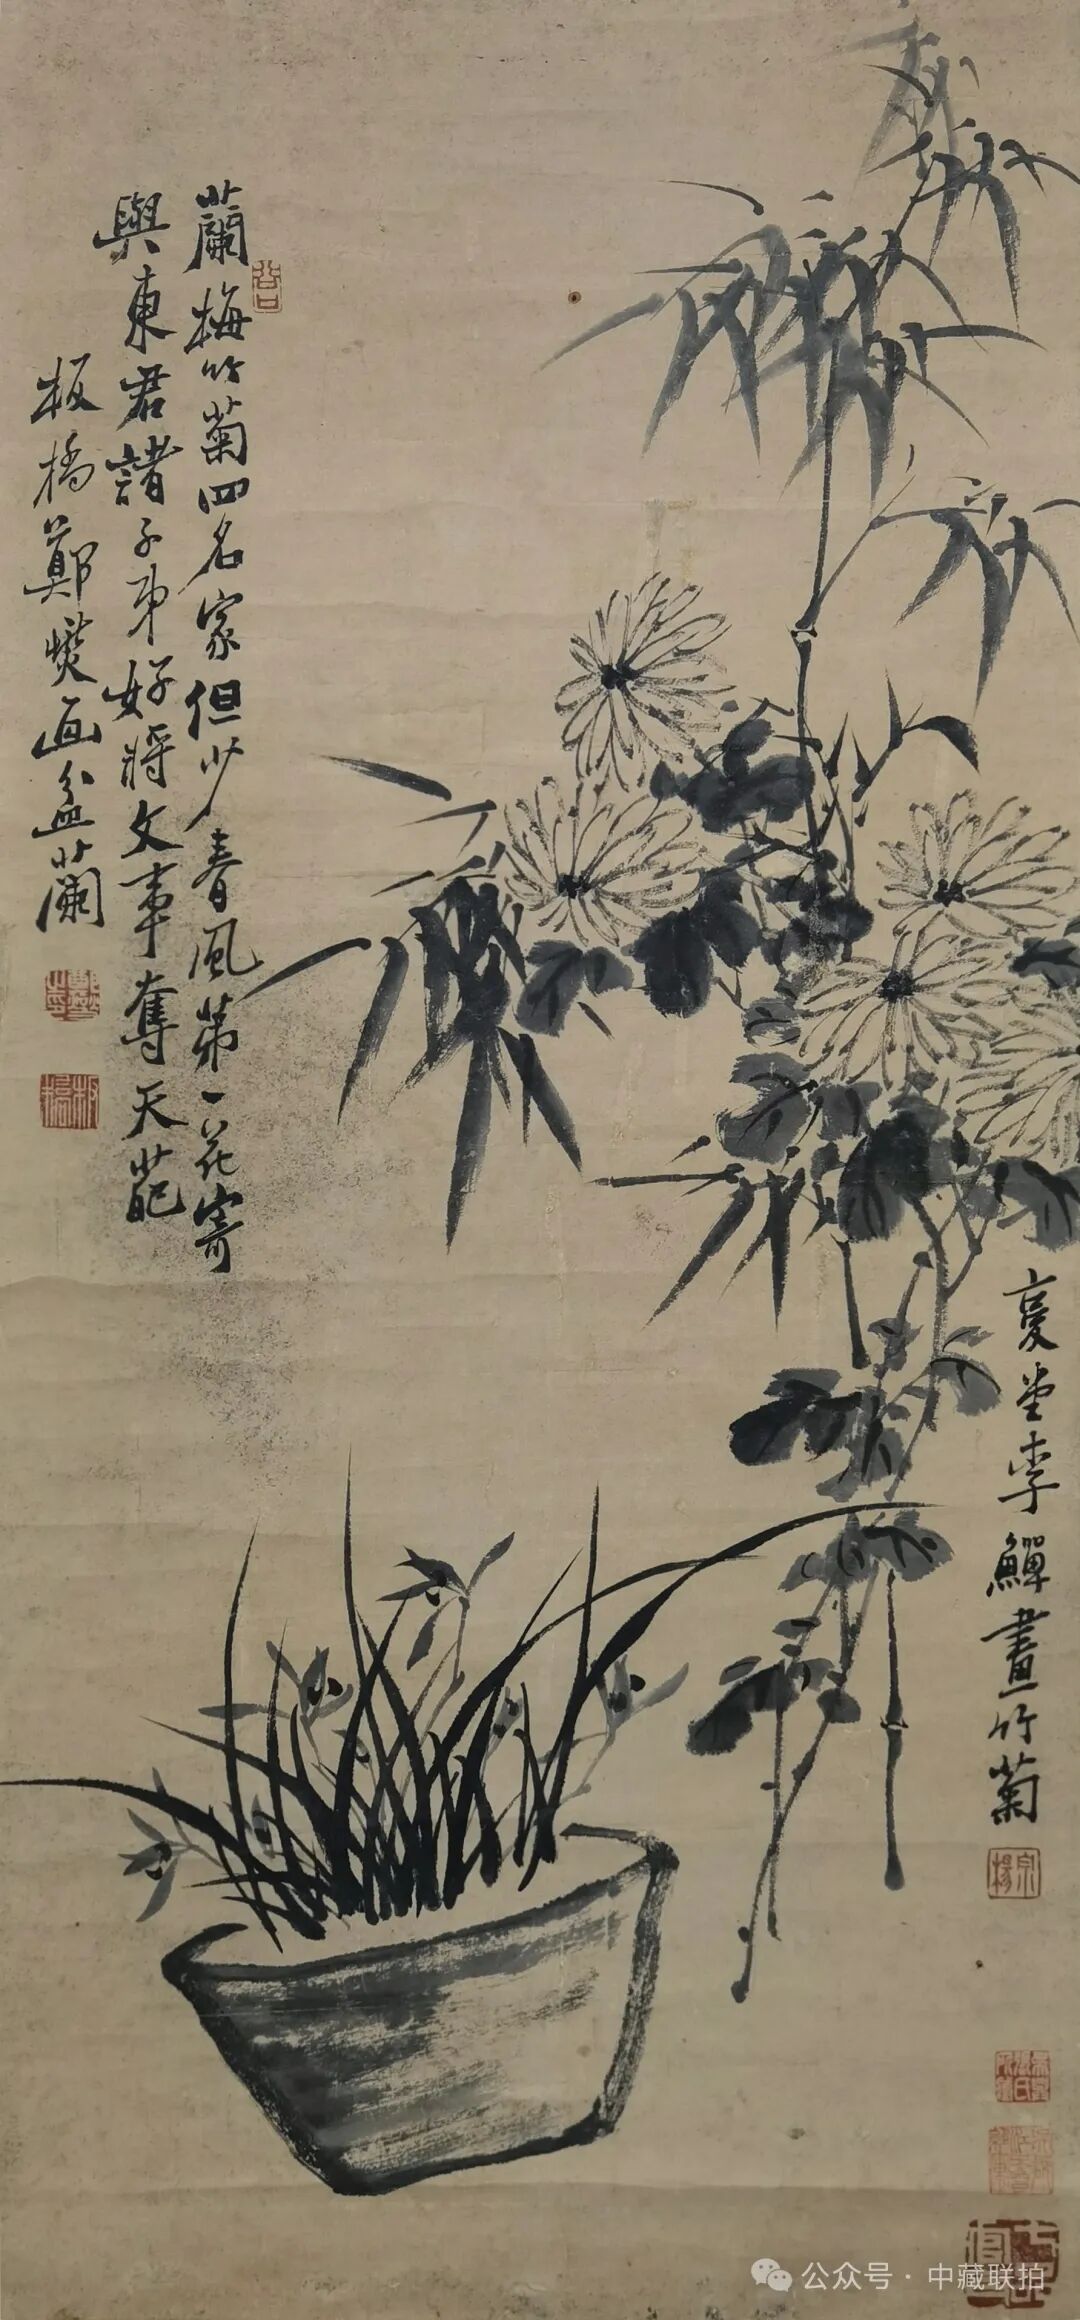 蘭梅竹菊四名家但少春風第一花寄
與東君諸子弟好將文事奪天葩
板橋鄭燮画盆蘭
谷口
鄭燮之印
板橋
復堂李鱓畫竹菊
宗楊
公众号·中藏联拍